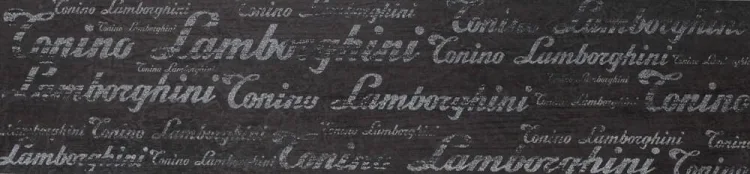 Tonino Lamborghini
Tonino Lamborghini
Tonino Lamborghini Tonino Lamborghini Tonino Lamborghini
Tonino Lamborghini
Tonino Lamborghini
Lamborghini Tonino Lamborghini Tonino Lamborghini Tonino
Tonino Lamborghini Tonino Lamborghini Tonino Lamborghini Tonino
Lamborghini Tonino Lamborghini Tonino Lamborghini Tonino